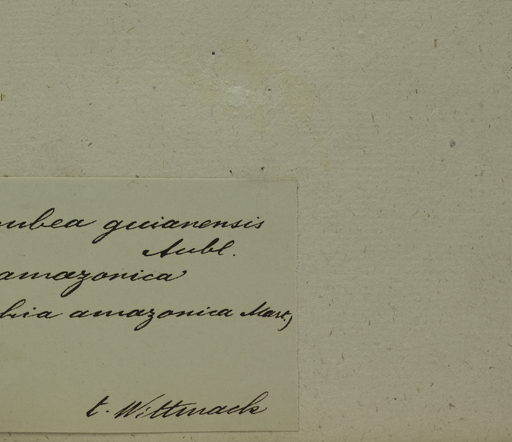 oubea guianensis
Aubl.
amazonica
bia amazonica Mart)
t. Wittmack